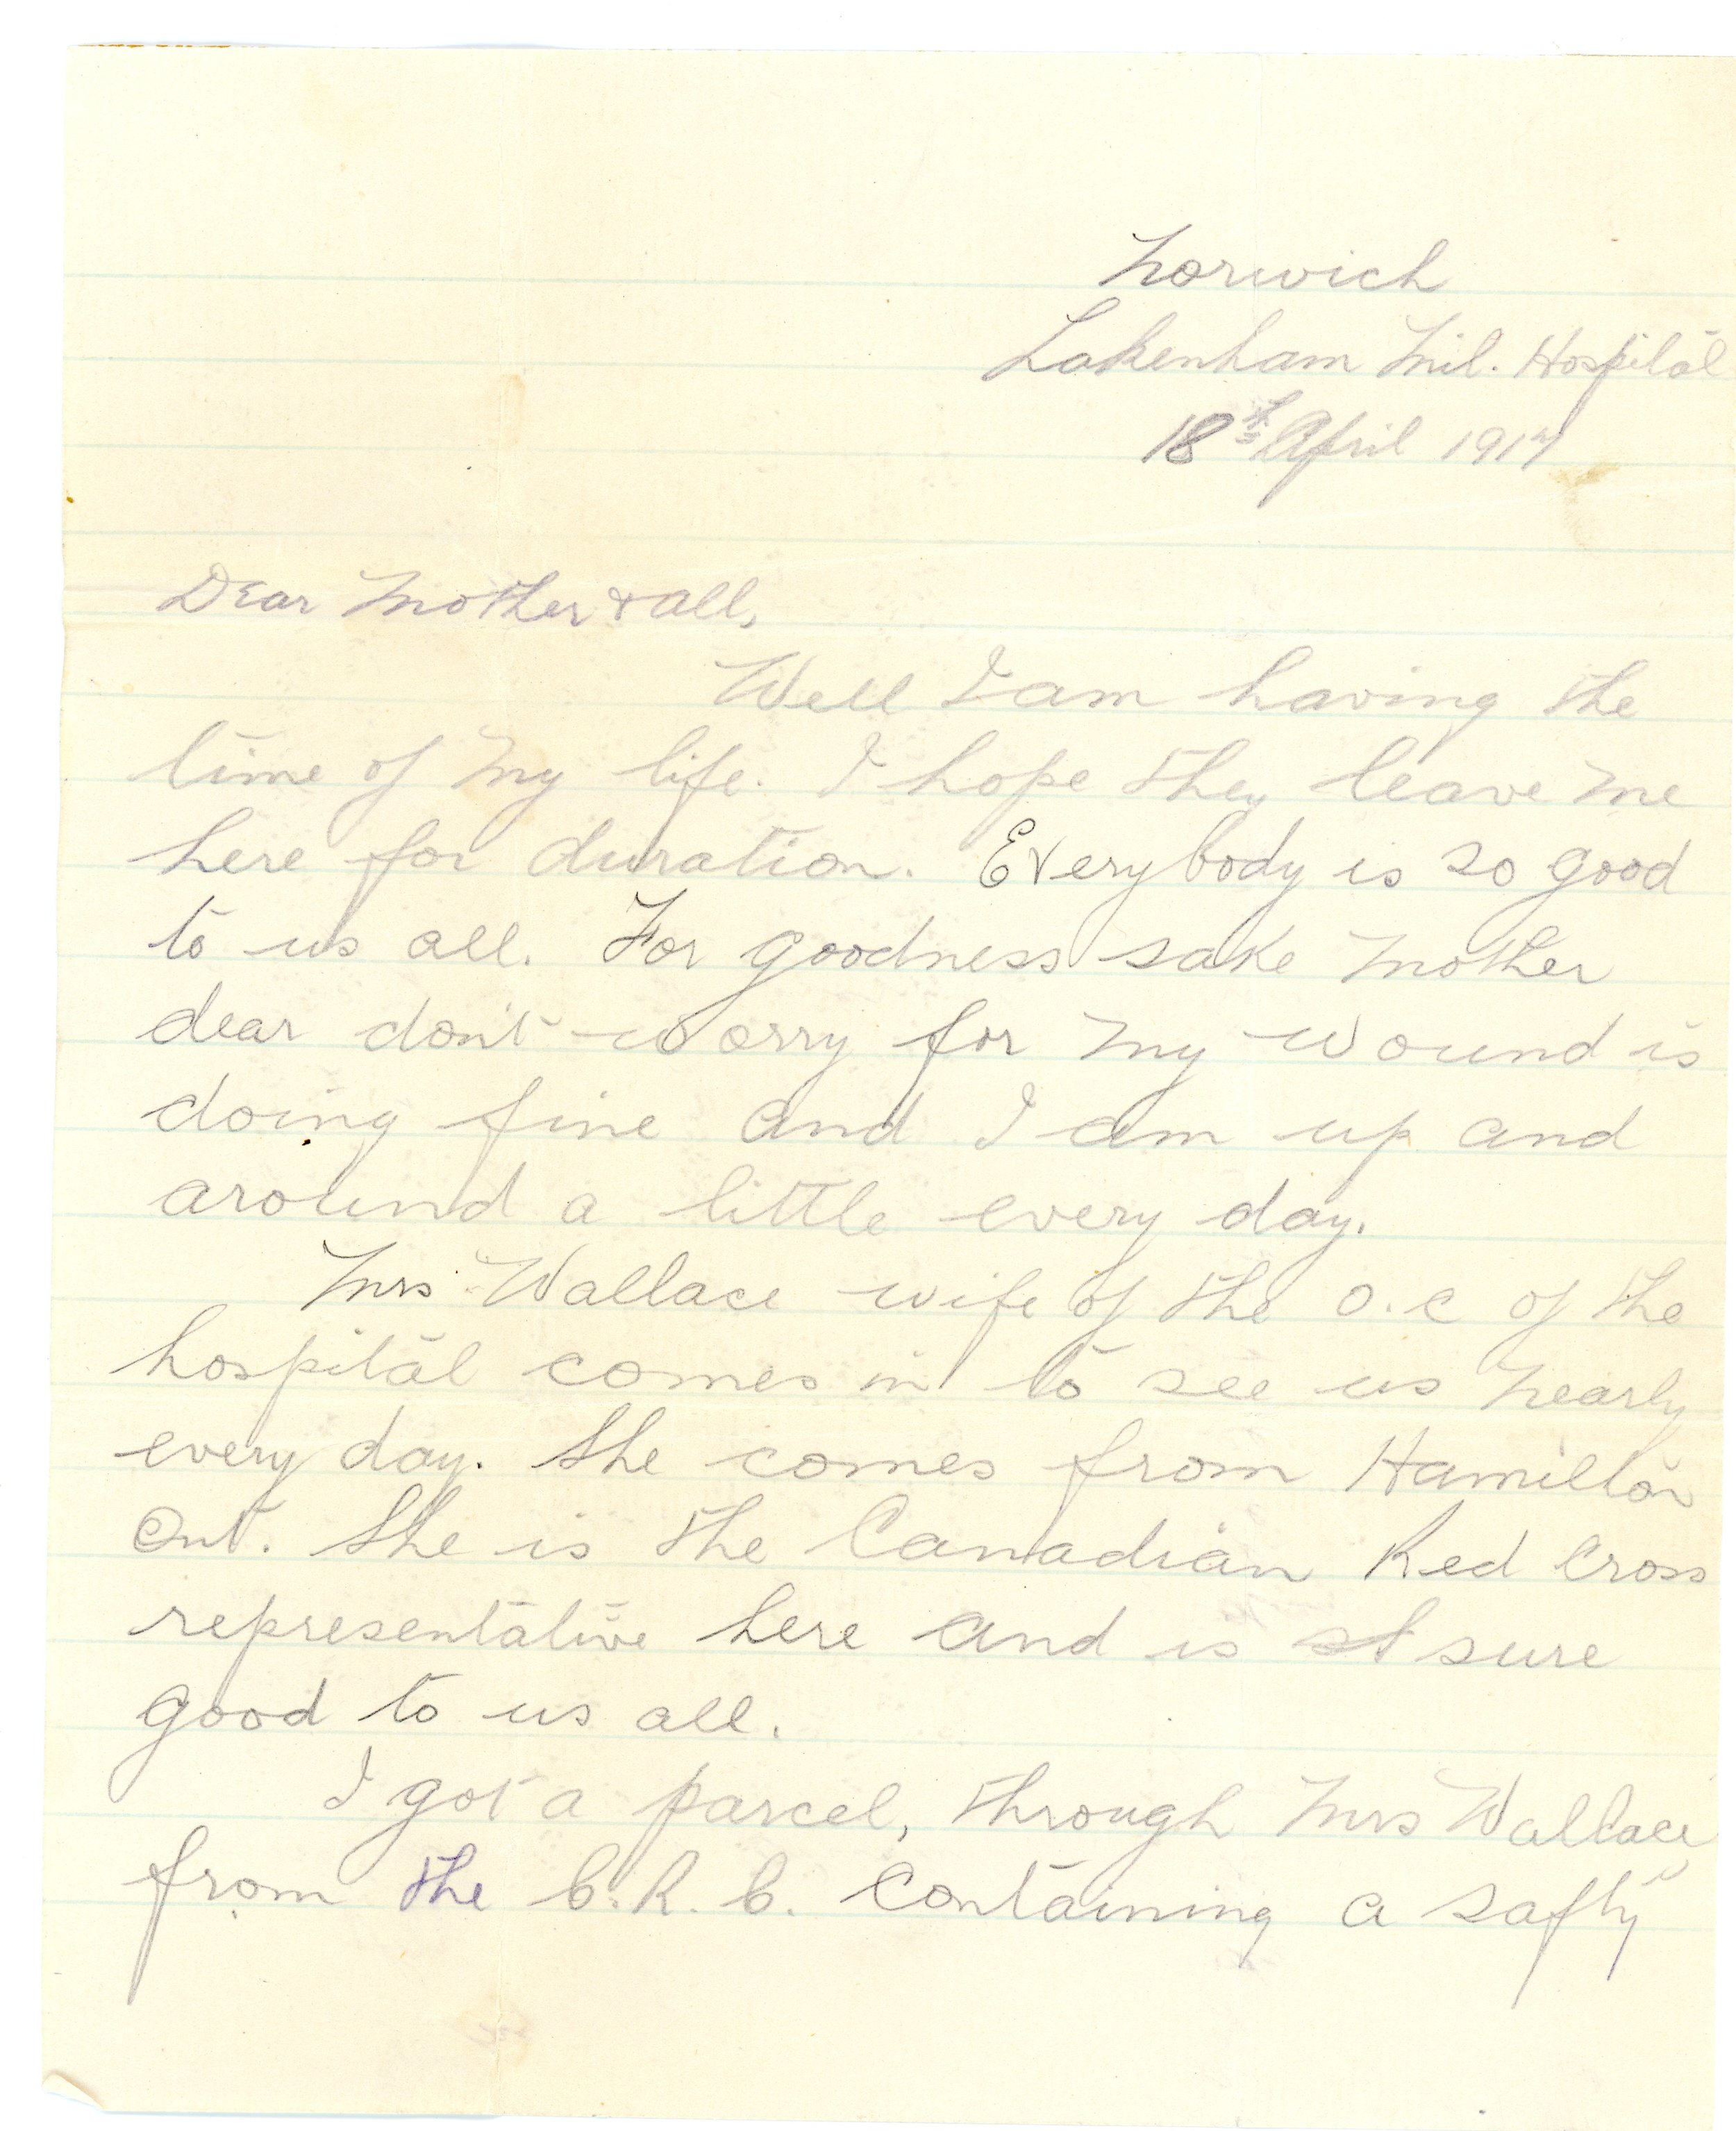 Norwich
Lakenham Mil. Hospital
18th April 1917
Dear Mother & all,
Well I am having the
time of my life. I hope they leave me
here for duration. Everybody is so good
to us all. For goodness sake Mother
dear don't worry for my wound is
doing fine and I am up and
around a little every day.
Mrs Wallace wife of the O.C of the
hospital comes in to see us nearly
every day. She comes from Hamilton
Ont. She is the Canadian Red Cross
representative here and is sure
good to us all.
I got a parcel, through Mrs Wallace,
from the C.R.C. containing a safty